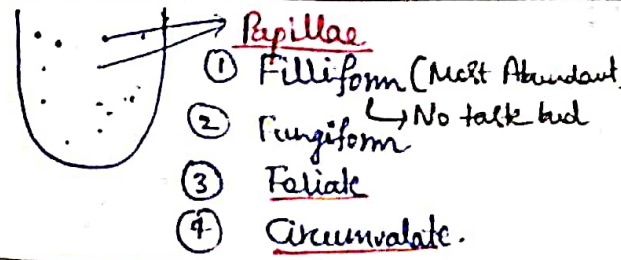 Papillae
① Filliform (Most Abundant)
↳ No taste bud
② Fungiform
③ Foliate
④ Circumvalate.